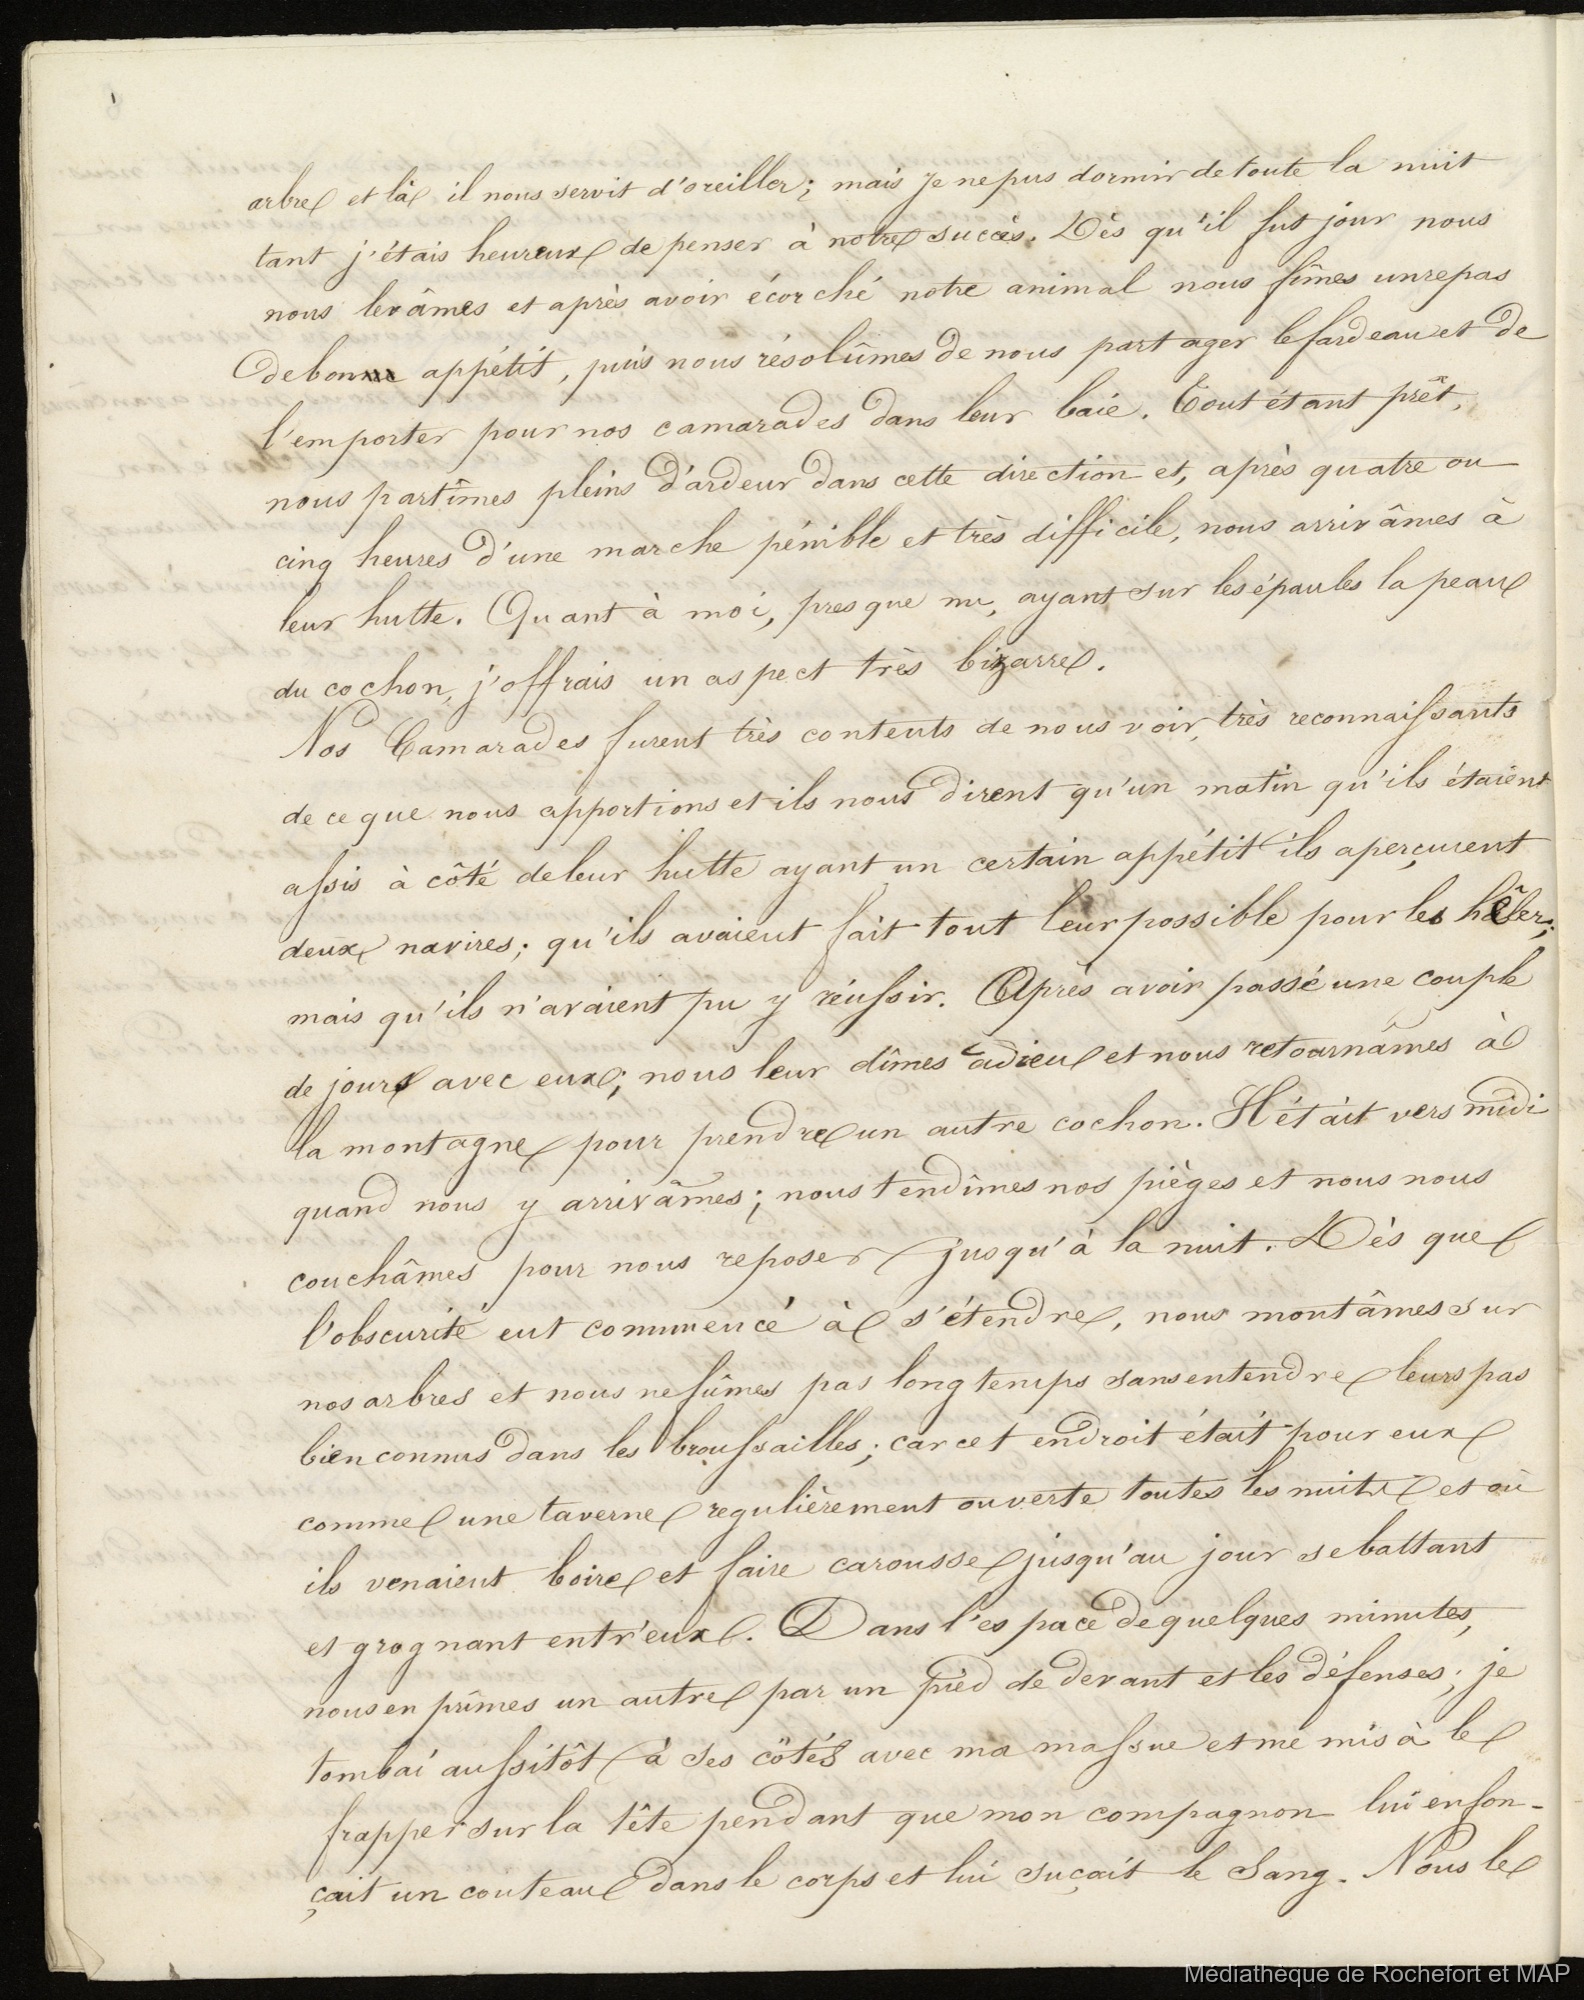 arbre et là il nous servit d'oreiller; mais je ne pus dormir de toute la nuit
tant j'étais heureux de penser à notre succès. Dès qu'il fut jour nous
nous levâmes et après avoir écorché notre animal nous fîmes un repas
de bonne appétit, puis nous résolûmes de nous partager le fardeau et de
l'emporter pour nos camarades dans leur baie. Tout étant prêt,
nous partîmes pleins d'ardeur dans cette direction et, après quatre ou
cinq heures d'une marche pénible et très difficile, nous arrivâmes à
leur hutte. Quant à moi, presque nu, ayant sur les épaules la peau
du cochon, j'offrais un aspect très bizarre.
Nos Camarades furent très contents de nous voir, très reconnaissants
de ce que nous apportions et ils nous dirent qu'un matin qu'ils étaient
assis à côté de leur hutte ayant un certain appétit ils aperçurent
deux navires; qu'ils avaient fait tout leur possible pour les hêler;
mais qu'ils n'avaient pu y réussir. Après avoir passé une couple
de jours avec eux; nous leur dîmes adieu et nous retournâmes à
la montagne pour prendre un autre cochon. Il était vers midi
quand nous y arrivâmes; nous tendîmes nos pièges et nous nous
couchâmes pour nous reposer jusqu'à la nuit. Dès que
l'obscurité eut commencé à s'étendre, nous montâmes sur
nos arbres et nous ne fûmes pas longtemps sans entendre leurs pas
bien connus dans les broussailles; car cet endroit était pour eux
comme une taverne regulièrement ouverte toutes les nuits et où
ils venaient boire et faire carousse jusqu'au jour se battant
et grognant entr'eux. Dans l'espace de quelques minutes,
nous en prîmes un autre par un pied de devant et les défenses; je
tombai aussitôt à ses côtés avec ma massue et me mis à le
frapper sur la tête pendant que mon compagnon lui enfon-
çait un couteau dans le corps et lui suçait le sang. Nous le
Médiathèque de Rochefort et MAP